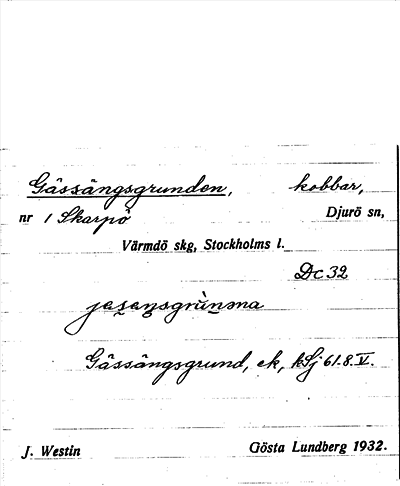 Gässängsgrunden, kobbar,
nr 1 Skarpö Djurö sn,
Värmdö skg, Stockholms l.
Dc 32
Gässängsgrund, ek, kSj 61.8.V.
J. Westin Gösta Lundberg 1932.